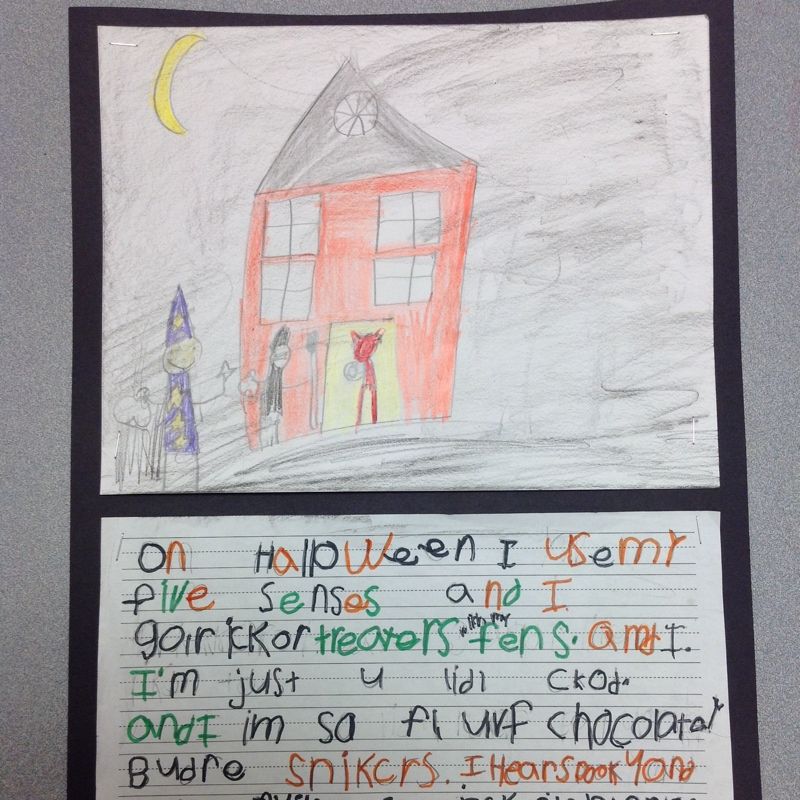 On Halloween I use my
five senses and I
go trickor treaters with my fens. and I.
I'm just u lidl ckod.
and I im so fl urf chocolate
Budre snikcrs. I Hear spooky and